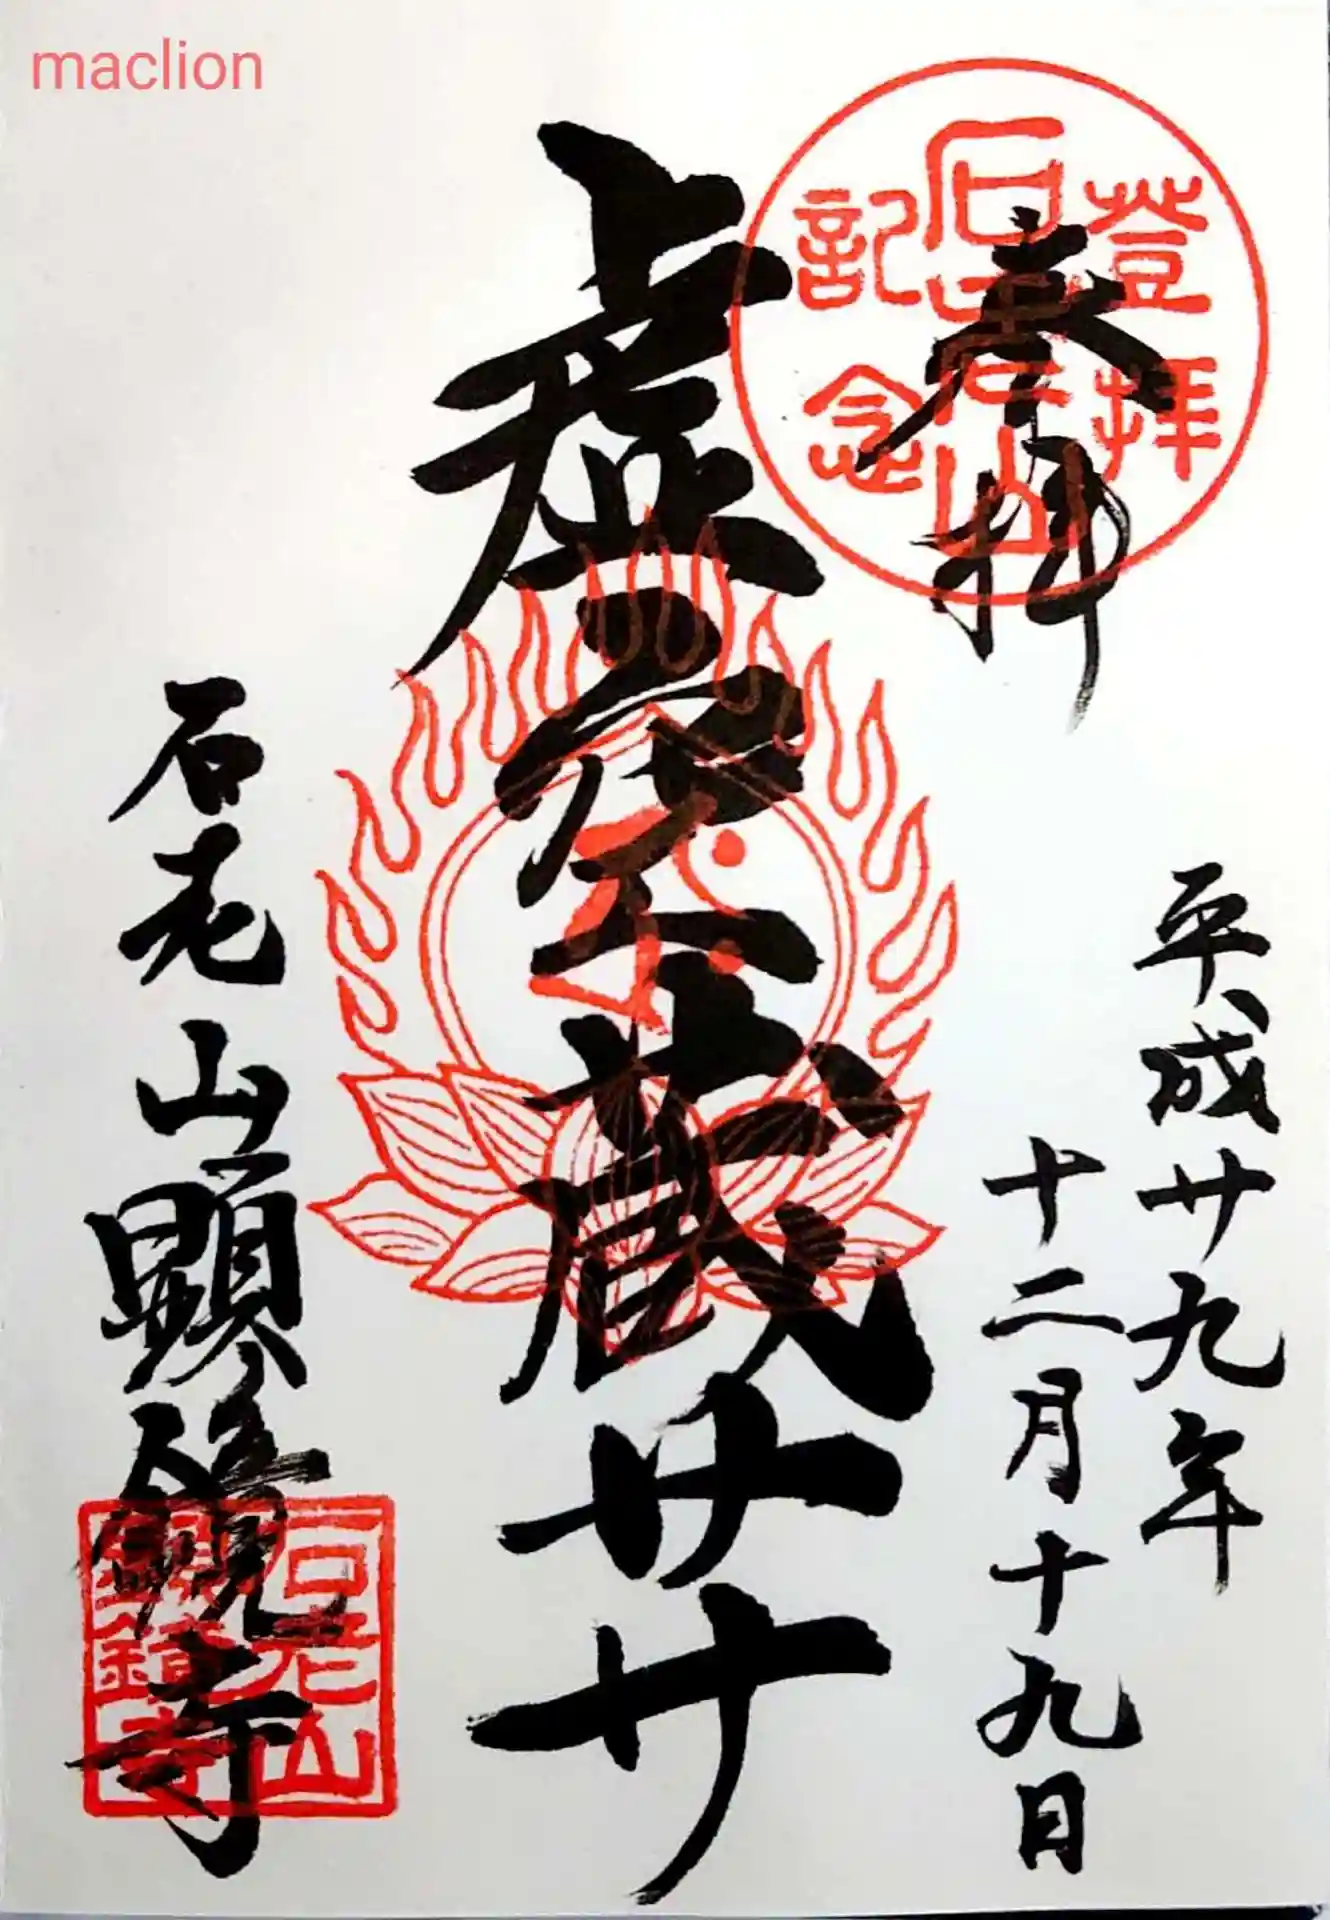 maclion
奉拝
登拝
石老山
記念
平成廿九年
十二月十九日
虚空蔵サササ
石老山顕鏡寺
石老山
顕鏡寺